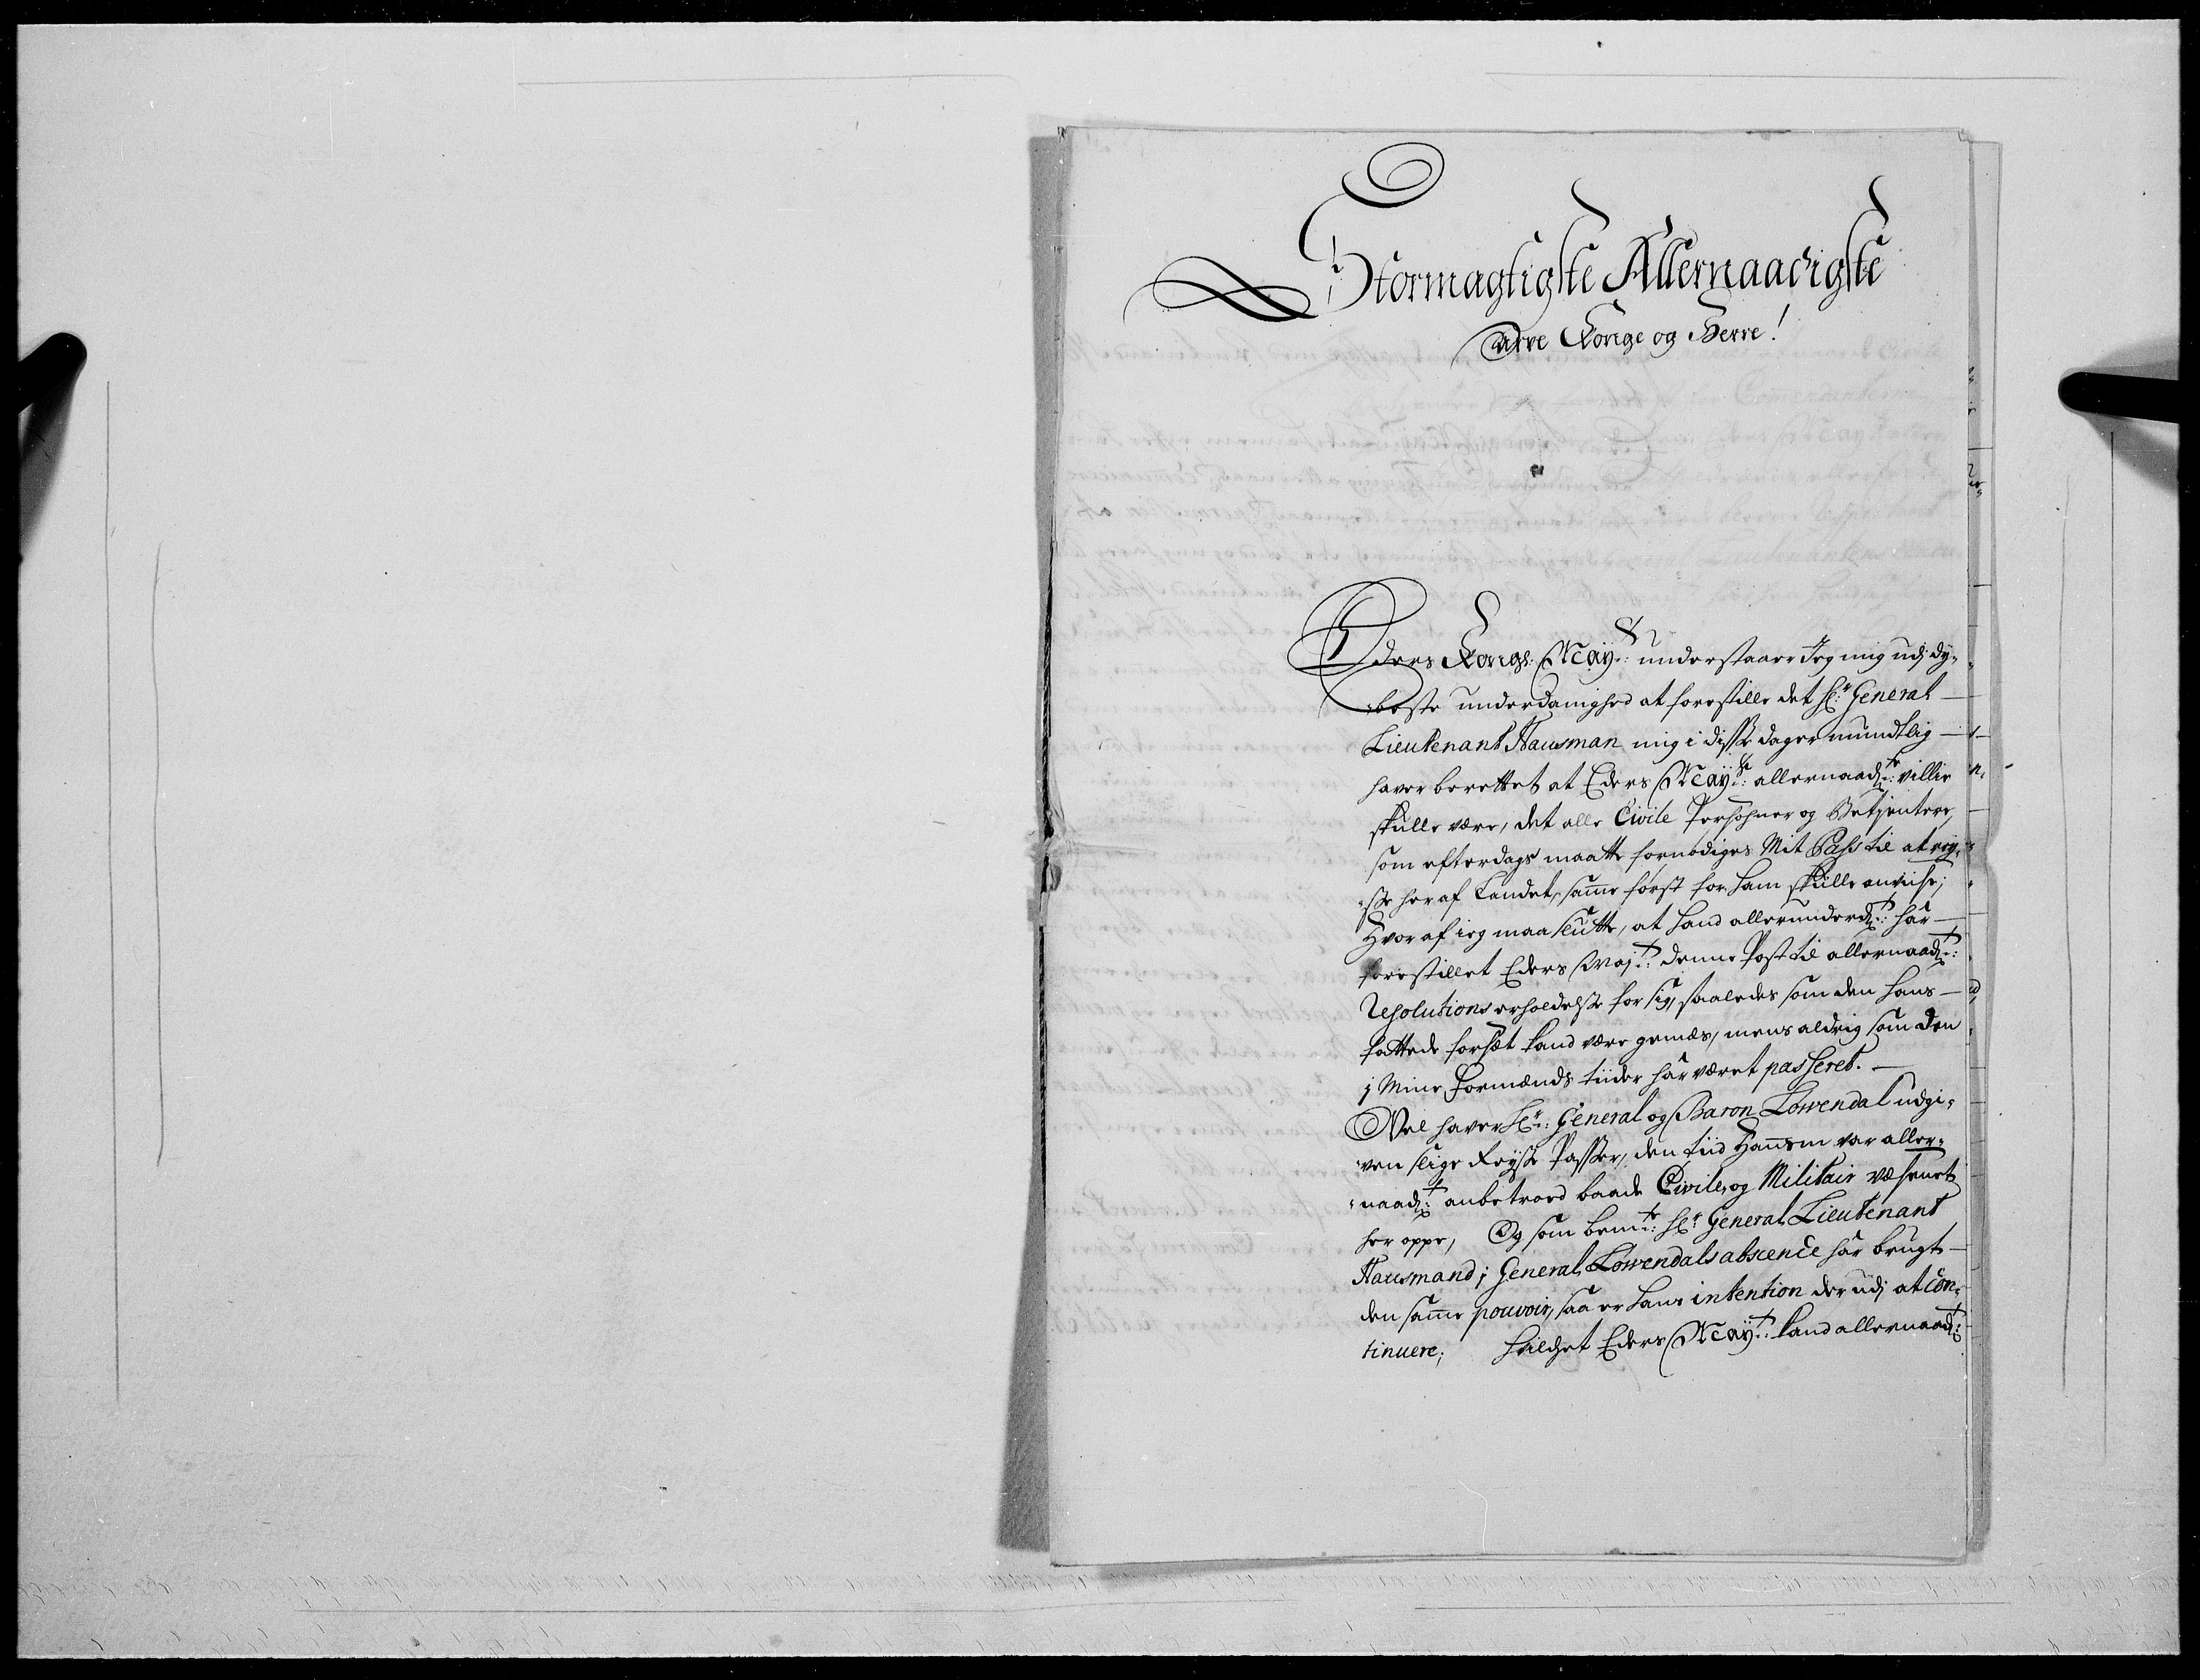 Stormagtigste Allernaadigste
Arve Konge og Herre!
Eders Kongl: May:tt understaaer Jeg mig udj dy-
beste underdanighed at forestille det H:r General
Lieutenant Hausman mig i disse dager mundtlig
haver berettet at Eders May:ts allernaad:ste villie
skulle være, det alle Civile Personer og Betjentere,
som efterdags maatte fornødiges Mit Pass til at rej-
se her af Landet, same først for ham skulle anvise;
Hvor af ieg maa slutte, at hand allerunderd:t har
forestillet Eders Maj:t denne Post til allernaad:t
Resolutions erholdelse for sig, saaledes som den hans
fattede forsæt kand være gemæs, mens aldrig som den
j Mine Formænds tiider har været passeret.
Vel haver H:r General og Baron Løwendal udgi-
ven slige Reyse Passer, den tiid Hannem var aller-
naad:t anbetroed baade Civile og Militair væsenet
her oppe, Og som bem:te H:r General Lieutenant
Hausmand j General Løwendals abscence har brugt
den same pouvoir, saa er hans intention der udj at con-
tinuere; hvilchet Eders May:t kand allernaad:t